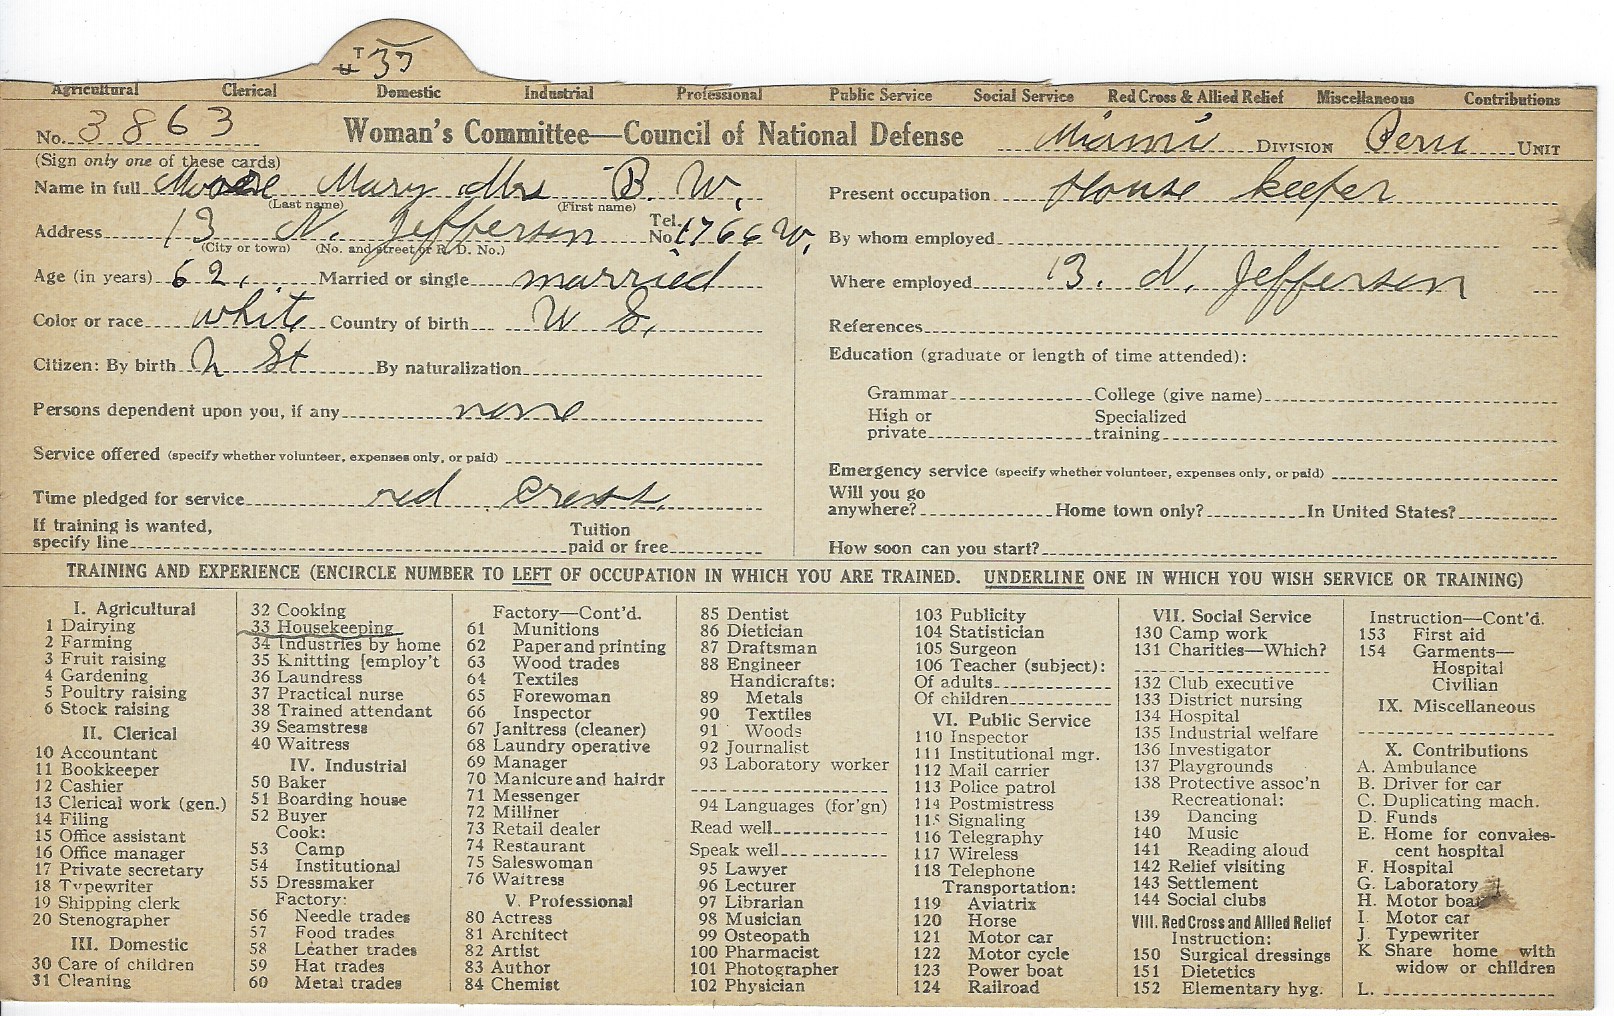 T 37
Agricultural Clerical Domestic Industrial Professional Public Service Social Service Red Cross & Allied Relief Miscellaneous Contributions
No. 3863 Woman's Committee—Council of National Defense Miami DIVISION Peru UNIT
(Sign only one of these cards)
Name in full Moore Mary Mrs B. W.
(Last name) (First name)
Address 13 N. Jefferson Tel. No. 1766 W.
(City or town) (No. and street or R. D. No.)
Age (in years) 62. Married or single married
Color or race white Country of birth U S.
Citizen: By birth U St By naturalization
Persons dependent upon you, if any none
Service offered (specify whether volunteer, expenses only, or paid)
Time pledged for service red cross.
If training is wanted, specify line Tuition paid or free
Present occupation House keeper
By whom employed
Where employed 13. N. Jefferson
References
Education (graduate or length of time attended):
Grammar College (give name)
High or private Specialized training
Emergency service (specify whether volunteer, expenses only, or paid)
Will you go anywhere? Home town only? In United States?
How soon can you start?
TRAINING AND EXPERIENCE (ENCIRCLE NUMBER TO LEFT OF OCCUPATION IN WHICH YOU ARE TRAINED. UNDERLINE ONE IN WHICH YOU WISH SERVICE OR TRAINING)
I. Agricultural
1 Dairying
2 Farming
3 Fruit raising
4 Gardening
5 Poultry raising
6 Stock raising
II. Clerical
10 Accountant
11 Bookkeeper
12 Cashier
13 Clerical work (gen.)
14 Filing
15 Office assistant
16 Office manager
17 Private secretary
18 Typewriter
19 Shipping clerk
20 Stenographer
III. Domestic
30 Care of children
31 Cleaning
32 Cooking
33 Housekeeping
34 Industries by home
35 Knitting [employ't
36 Laundress
37 Practical nurse
38 Trained attendant
39 Seamstress
40 Waitress
IV. Industrial
50 Baker
51 Boarding house
52 Buyer
Cook:
53 Camp
54 Institutional
55 Dressmaker
Factory:
56 Needle trades
57 Food trades
58 Leather trades
59 Hat trades
60 Metal trades
Factory—Cont'd.
61 Munitions
62 Paper and printing
63 Wood trades
64 Textiles
65 Forewoman
66 Inspector
67 Janitress (cleaner)
68 Laundry operative
69 Manager
70 Manicure and hairdr
71 Messenger
72 Milliner
73 Retail dealer
74 Restaurant
75 Saleswoman
76 Waitress
V. Professional
80 Actress
81 Architect
82 Artist
83 Author
84 Chemist
85 Dentist
86 Dietician
87 Draftsman
88 Engineer
Handicrafts:
89 Metals
90 Textiles
91 Woods
92 Journalist
93 Laboratory worker
94 Languages (for'gn)
Read well
Speak well
95 Lawyer
96 Lecturer
97 Librarian
98 Musician
99 Osteopath
100 Pharmacist
101 Photographer
102 Physician
103 Publicity
104 Statistician
105 Surgeon
106 Teacher (subject):
Of adults
Of children
VI. Public Service
110 Inspector
111 Institutional mgr.
112 Mail carrier
113 Police patrol
114 Postmistress
115 Signaling
116 Telegraphy
117 Wireless
118 Telephone
Transportation:
119 Aviatrix
120 Horse
121 Motor car
122 Motor cycle
123 Power boat
124 Railroad
VII. Social Service
130 Camp work
131 Charities—Which?
132 Club executive
133 District nursing
134 Hospital
135 Industrial welfare
136 Investigator
137 Playgrounds
138 Protective assoc'n
Recreational:
139 Dancing
140 Music
141 Reading aloud
142 Relief visiting
143 Settlement
144 Social clubs
VIII. Red Cross and Allied Relief
Instruction:
150 Surgical dressings
151 Dietetics
152 Elementary hyg.
Instruction—Cont'd.
153 First aid
154 Garments—
Hospital
Civilian
IX. Miscellaneous
X. Contributions
A. Ambulance
B. Driver for car
C. Duplicating mach.
D. Funds
E. Home for convales-
cent hospital
F. Hospital
G. Laboratory
H. Motor boat
I. Motor car
J. Typewriter
K Share home with
widow or children
L.